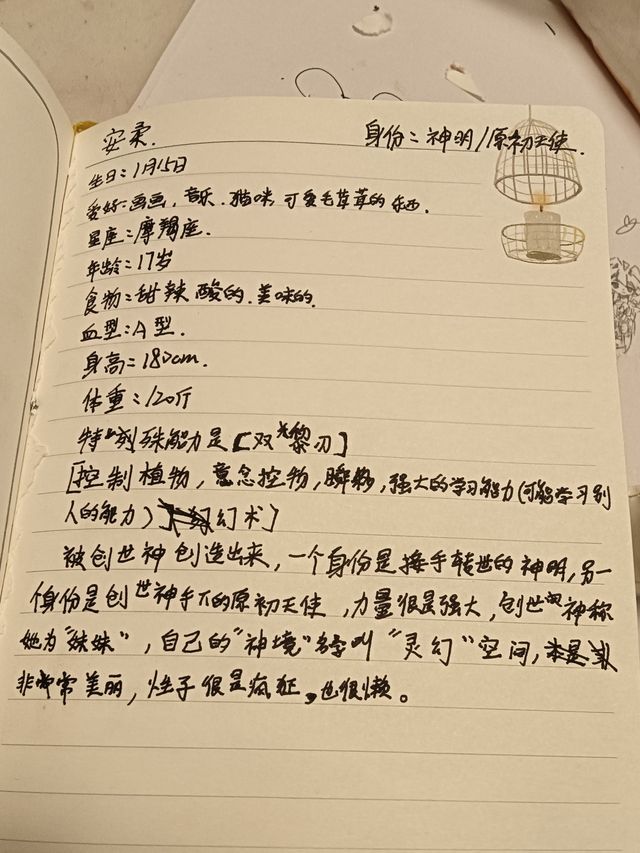 安柔.
身份:神明/原初天使.
生日:1月15日
爱好:画画,音乐.猫咪,可爱毛茸茸的东西.
星座:摩羯座.
年龄:17岁
食物:甜辣酸的.美味的.
血型:A型.
身高:180cm.
体重:120斤
特殊能力是[双光黎刃]
[控制植物,意念控物,瞬移,强大的学习能力(可能学习别
人的能力)幻术]
被创世神创造出来,一个身份是接手转世的神明,另一
个身份是创世神手下的原初天使,力量很是强大,创世神称
她为"妹妹",自己的"神境"名字叫"灵幻"空间,
非常美丽,性子很是疯狂,也很懒。